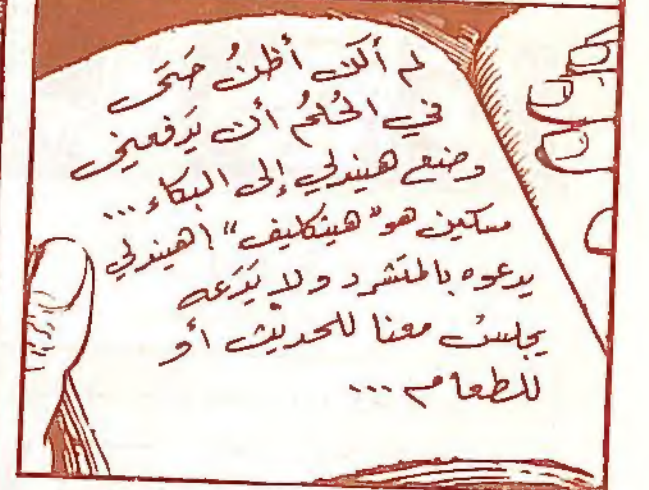 لم أكن أظنُ حَتى
في الحُلمُ أن يَدفعني
وضع هيندلي إلى البكاء...
مسكين هو "هيثكليف"! هيندلي
يدعوه بالمتشرد ولا يَدَعه
يجلسُ معنا للحديث أو
للطعام ...